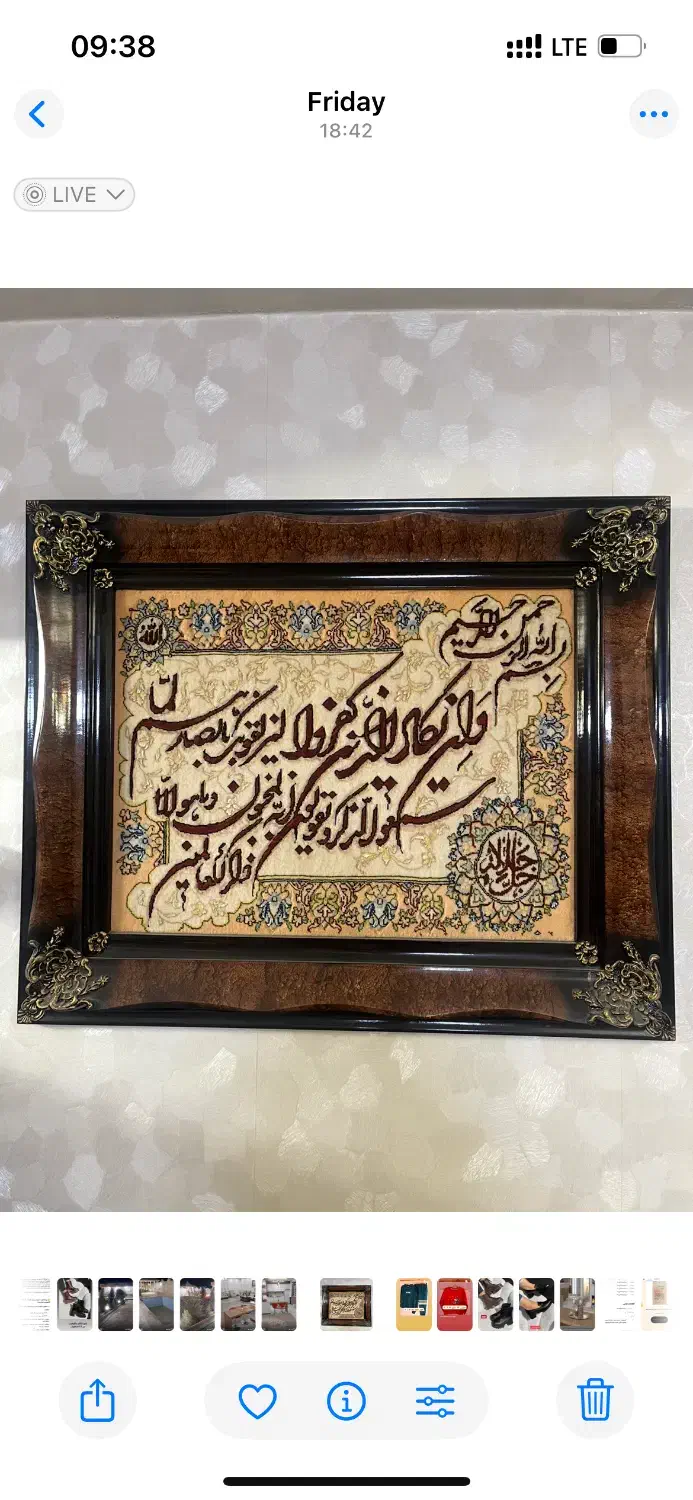 09:38
LTE
Friday
18:42
LIVE
بسم الله الرحمن الرحیم
الله
وان یکاد الذین کفروا لیزلقونک بابصارهم لما
سمعوا الذکر و یقولون انه لمجنون وما هو الا
ذکر للعالمین
جل جلاله